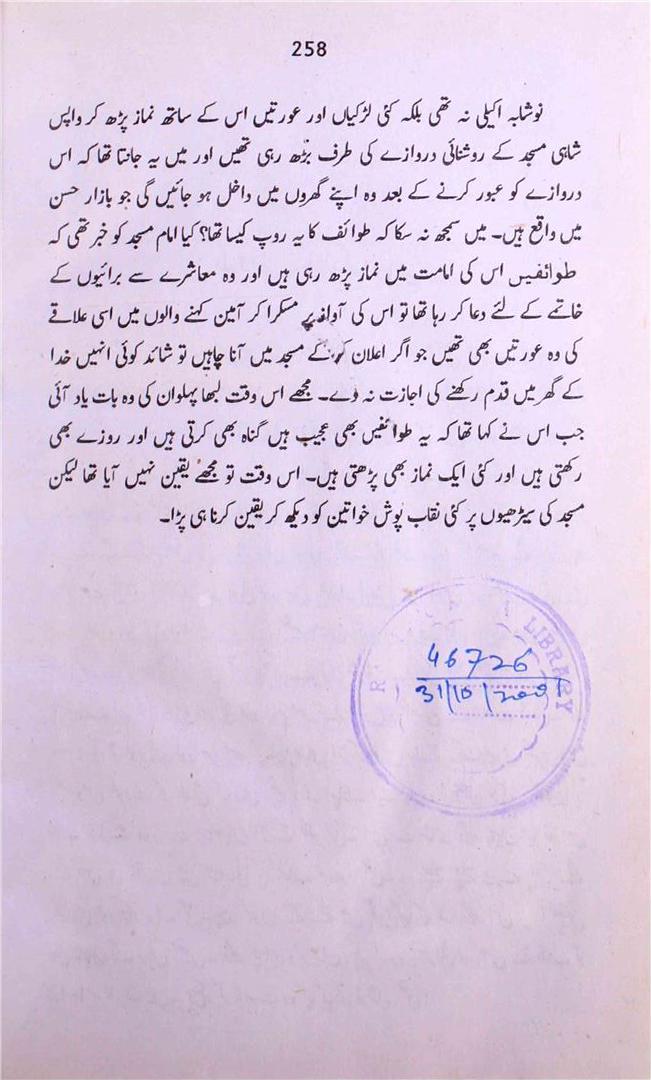 258
نوشابہ اکیلی نہ تھی بلکہ کئی لڑکیاں اور عورتیں اس کے ساتھ نماز پڑھ کر واپس
شاہی مسجد کے روشنائی دروازے کی طرف بڑھ رہی تھیں اور میں یہ جانتا تھا کہ اس
دروازے کو عبور کرنے کے بعد وہ اپنے گھروں میں داخل ہو جائیں گی جو بازار حسن
میں واقع ہیں۔ میں سمجھ نہ سکا کہ طوائف کا یہ روپ کیسا تھا؟ کیا امام مسجد کو خبر تھی کہ
طوائفیں اس کی امامت میں نماز پڑھ رہی ہیں اور وہ معاشرے سے برائیوں کے
خاتمے کے لئے دعا کر رہا تھا تو اس کی آواز پر مسکرا کر آمین کہنے والوں میں اسی علاقے
کی وہ عورتیں بھی تھیں جو اگر اعلان کر کے مسجد میں آنا چاہیں تو شائد کوئی انہیں خدا
کے گھر میں قدم رکھنے کی اجازت نہ دے۔ مجھے اس وقت لبھا پہلوان کی وہ بات یاد آئی
جب اس نے کہا تھا کہ یہ طوائفیں بھی عجیب ہیں گناہ بھی کرتی ہیں اور روزے بھی
رکھتی ہیں اور کئی ایک نماز بھی پڑھتی ہیں۔ اس وقت تو مجھے یقین نہیں آیا تھا لیکن
مسجد کی سیڑھیوں پر کئی نقاب پوش خواتین کو دیکھ کر یقین کرنا ہی پڑا۔
LIBRARY
46726
31/10/2001